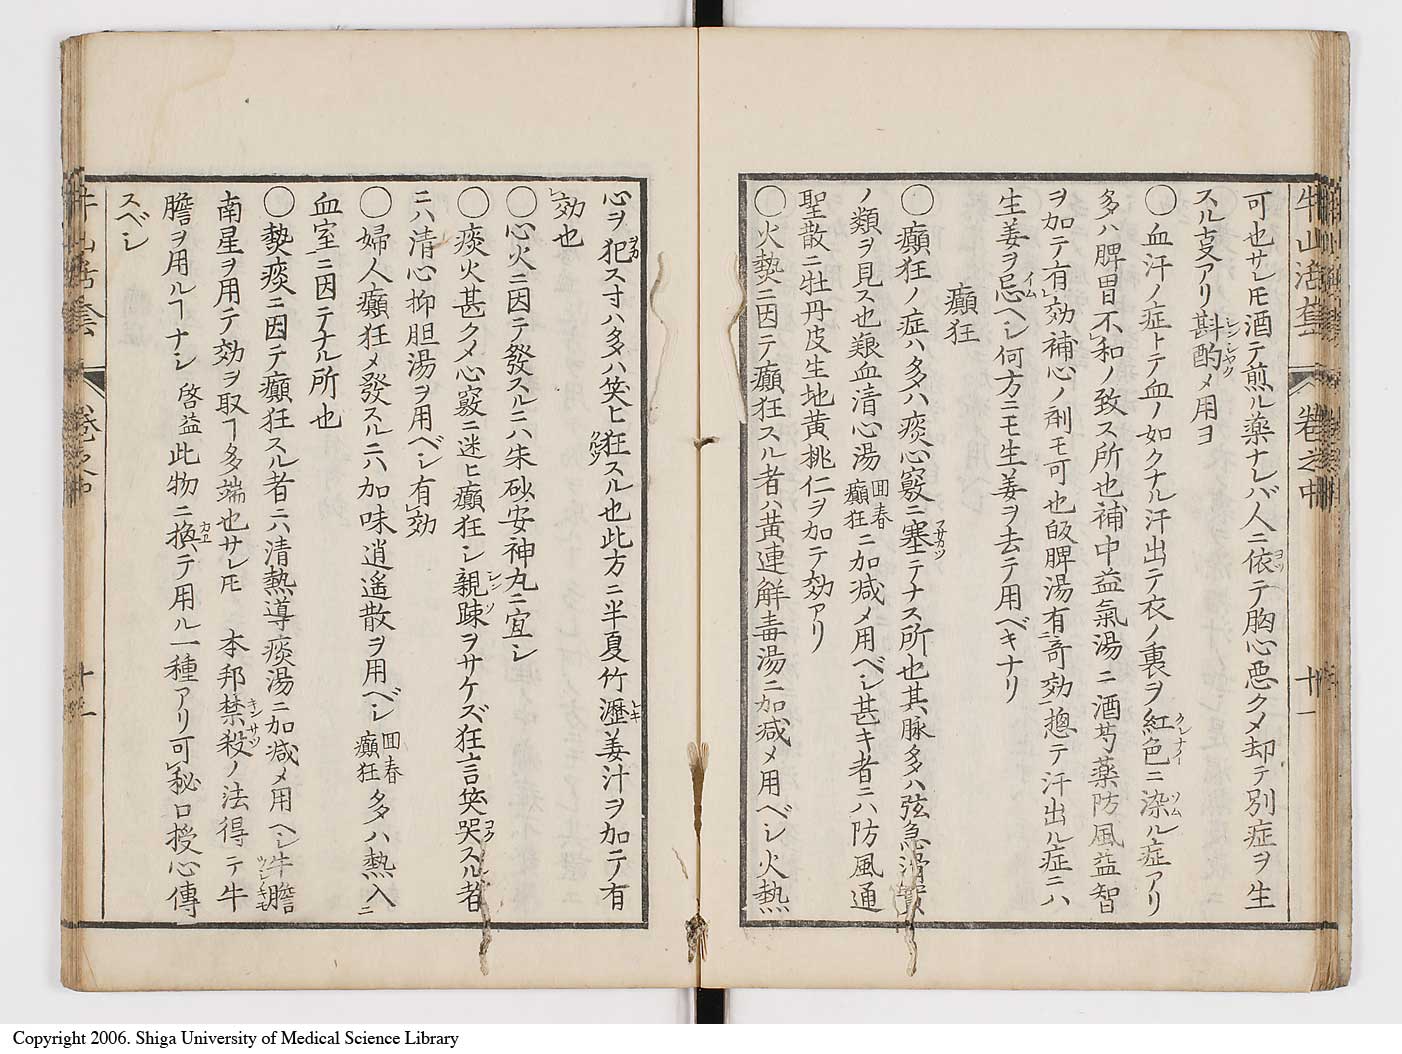 牛山活套 卷之中 廿一
可也サレ𪜈酒テ煎ル藥ナレバ人ニ依テ胸心悪クメ却テ別症ヲ生
スル叓アリ斟酌メ用ヨ
〇血汗ノ症トテ血ノ如クナル汗出テ衣ノ裏ヲ紅色ニ染ル症アリ
多ハ脾胃不和ノ致ス所也補中益氣湯ニ酒芍藥防風益智
ヲ加テ有効補心ノ剤モ可也皈脾湯有奇効揔テ汗出ル症ニハ
生姜ヲ忌ヘシ何方ニモ生姜ヲ去テ用ベキナリ
癲狂
〇癲狂ノ症ハ多ハ痰心竅ニ塞テナス所也其脉多ハ弦急滑實
ノ類ヲ見ス也艱血清心湯回春癲狂ニ加减メ用ベシ甚キ者ニハ防風通
聖散ニ牡丹皮生地黄桃仁ヲ加テ効アリ
〇火𤍠ニ因テ癲狂スル者ハ黄連解毒湯ニ加减メ用ベシ火熱
心ヲ犯ス寸ハ多ハ笑ヒ狂スル也此方ニ半夏竹瀝姜汁ヲ加テ有
効也
〇心火ニ因テ發スルニハ朱砂安神丸ニ宜シ
〇痰火甚クメ心竅ニ迷ヒ癲狂シ親踈ヲサケズ狂言笑哭スル者
ニハ清心抑胆湯ヲ用ベシ有効
〇婦人癲狂メ發スルニハ加味逍遥散ヲ用ベシ回春癲狂多ハ熱入
血室ニ因テナル所也
〇𤍠痰ニ因テ癲狂スル者ニハ清熱導痰湯ニ加减メ用ヘシ牛膽
南星ヲ用テ効ヲ取ヿ多端也サレ𪜈 本邦禁殺ノ法得テ牛
膽ヲ用ルヿナシ 啓益此物ニ換テ用ル一種アリ可秘口授心傳
スベシ
牛山活套 卷之中 廿一
Copyright 2006. Shiga University of Medical Science Library